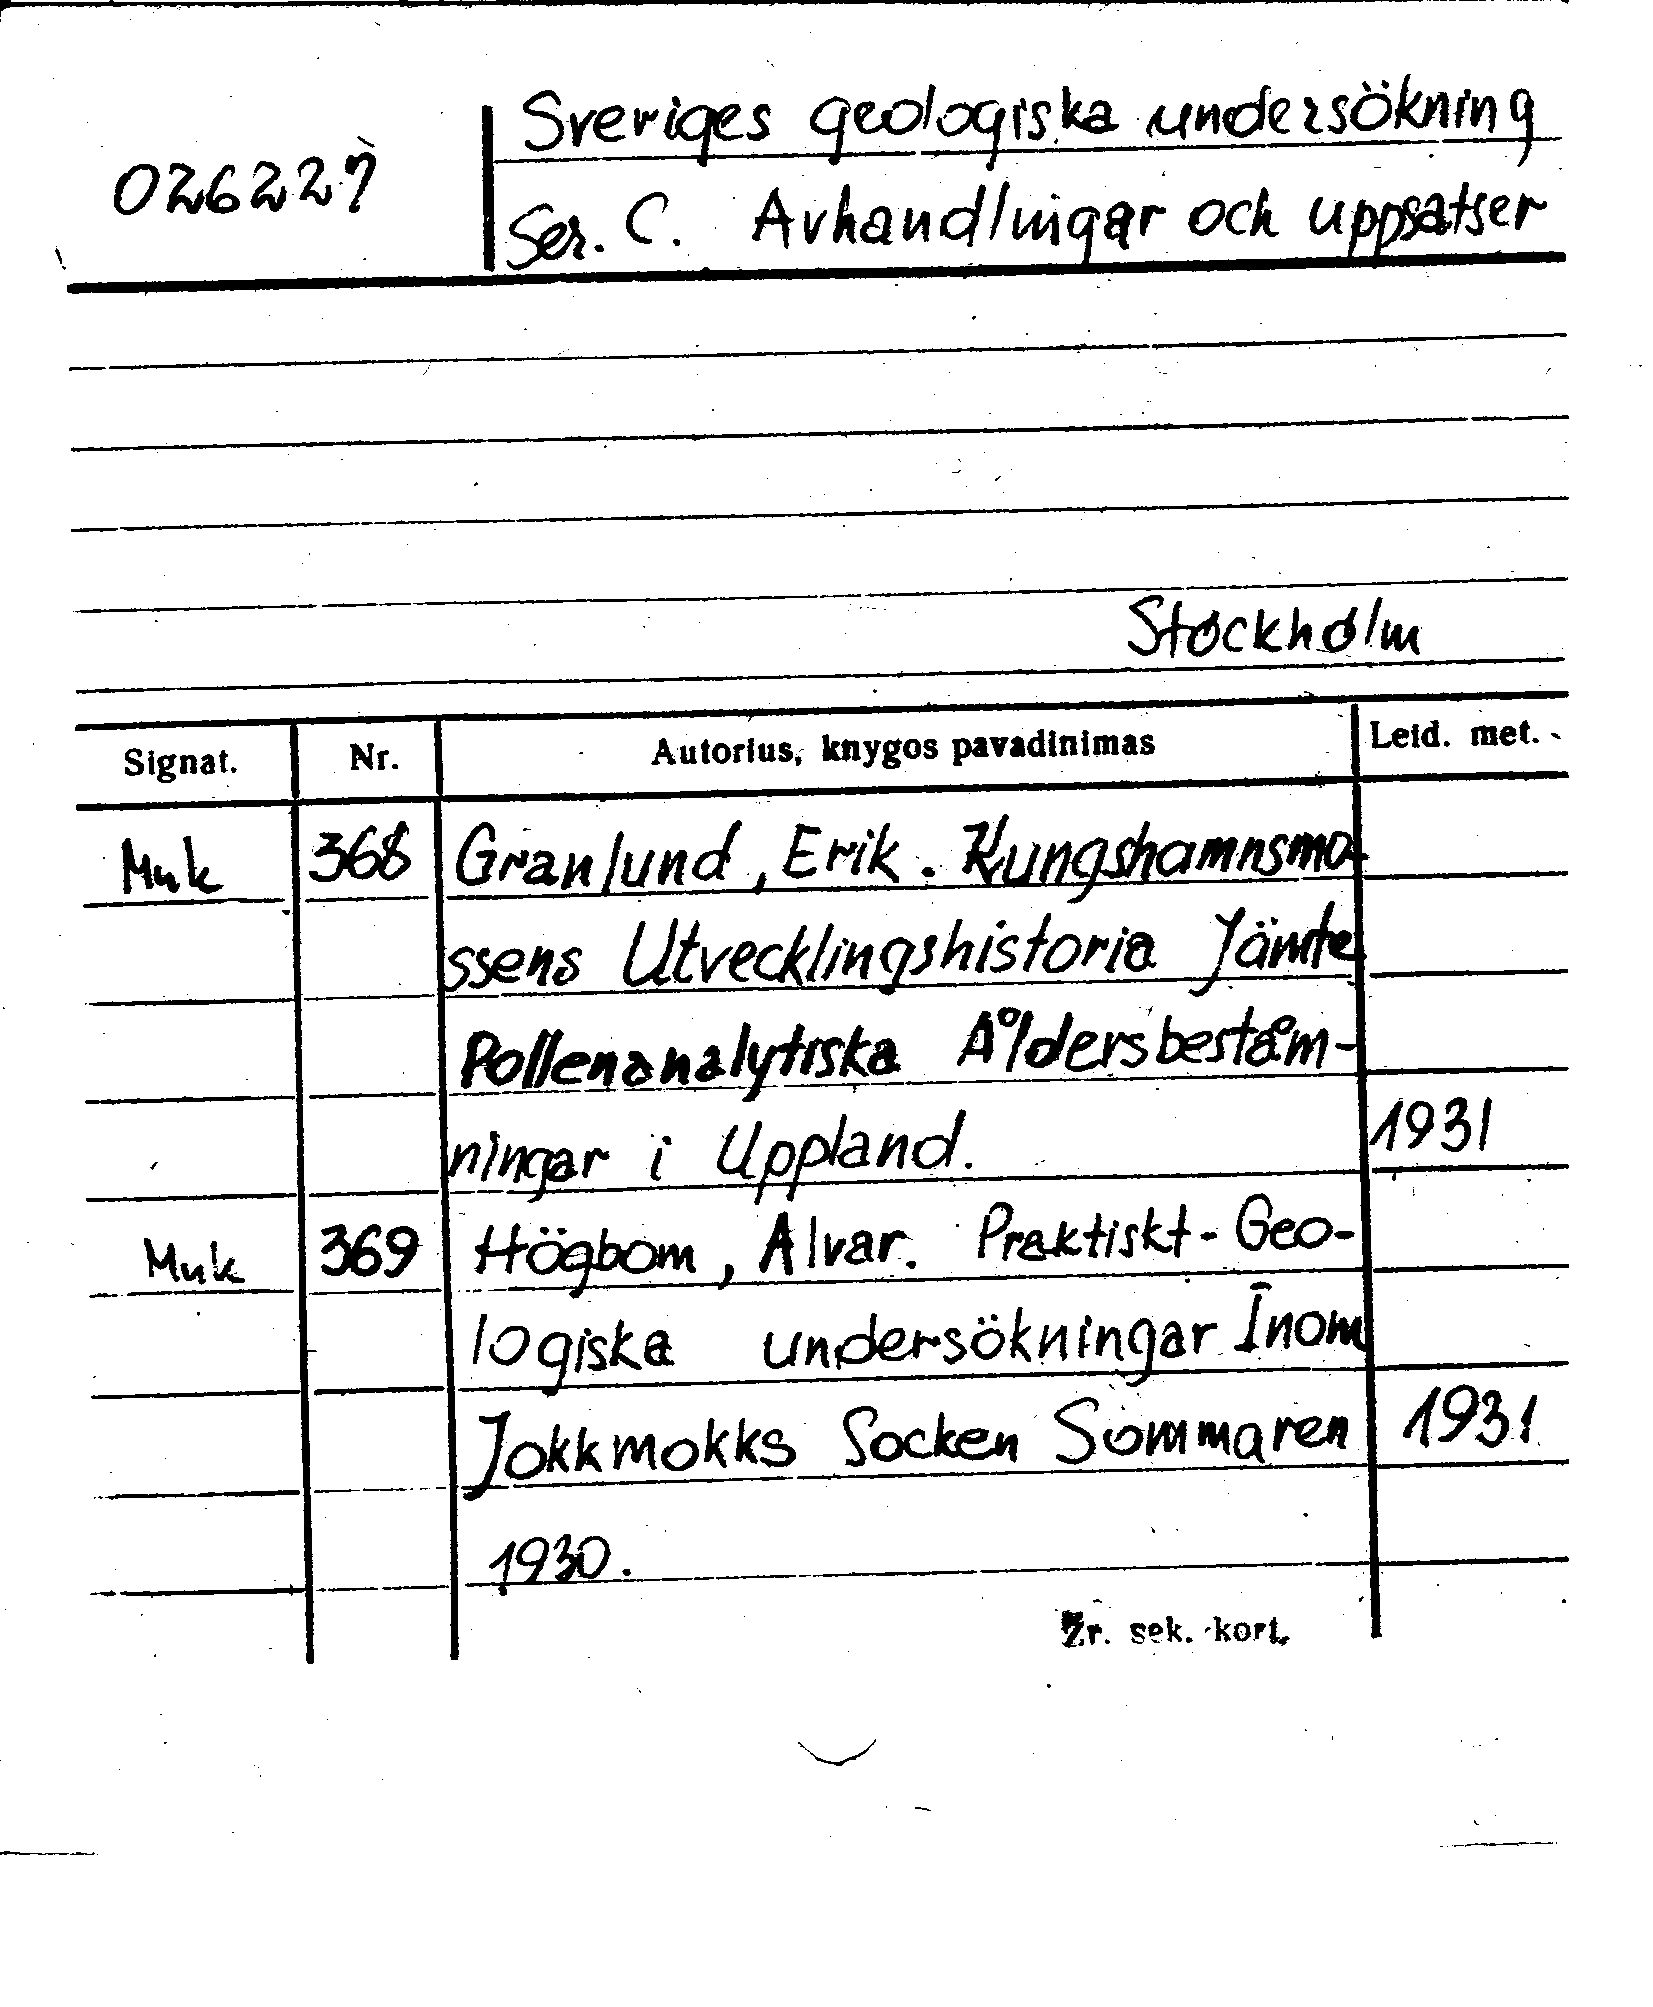 Sveriges geologiska undersökning
026227
Ser. C. Avhandlingar och uppsatser
Stockholm
Signat. Nr. Autorius, knygos pavadinimas Leid. met.
Muk 368 Granlund, Erik. Kungshamnsmo-
ssens Utvecklingshistoria Jämte
Pollenanalytiska Åldersbeståm-
ningar i Uppland. 1931
Muk 369 Högbom, Alvar. Praktiskt-Geo-
logiska undersökningar Inom
Jokkmokks Socken Sommaren 1931
1930.
Žr. sek. kort.